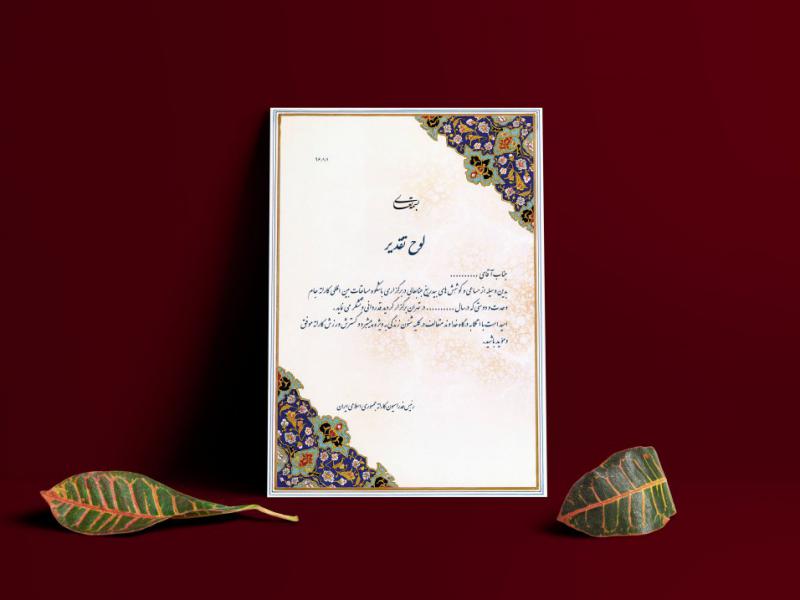 ۹۶/۸/۱
بسمه تعالی
لوح تقدیر
جناب آقای ..........
بدین وسیله از مساعی و کوشش های بیدریغ جنابعالی در برگزاری باشکوه مسابقات بین المللی کاراته جام
وحدت و دوستی که در سال .......... در تهران برگزار گردید قدردانی و تشکر می نماید.
امید است با اتکا به درگاه خداوند متعال در کلیه شئون زندگی به ویژه پیشبرد و گسترش ورزش کاراته موفق
و مؤید باشید.
رئیس فدراسیون کاراته جمهوری اسلامی ایران